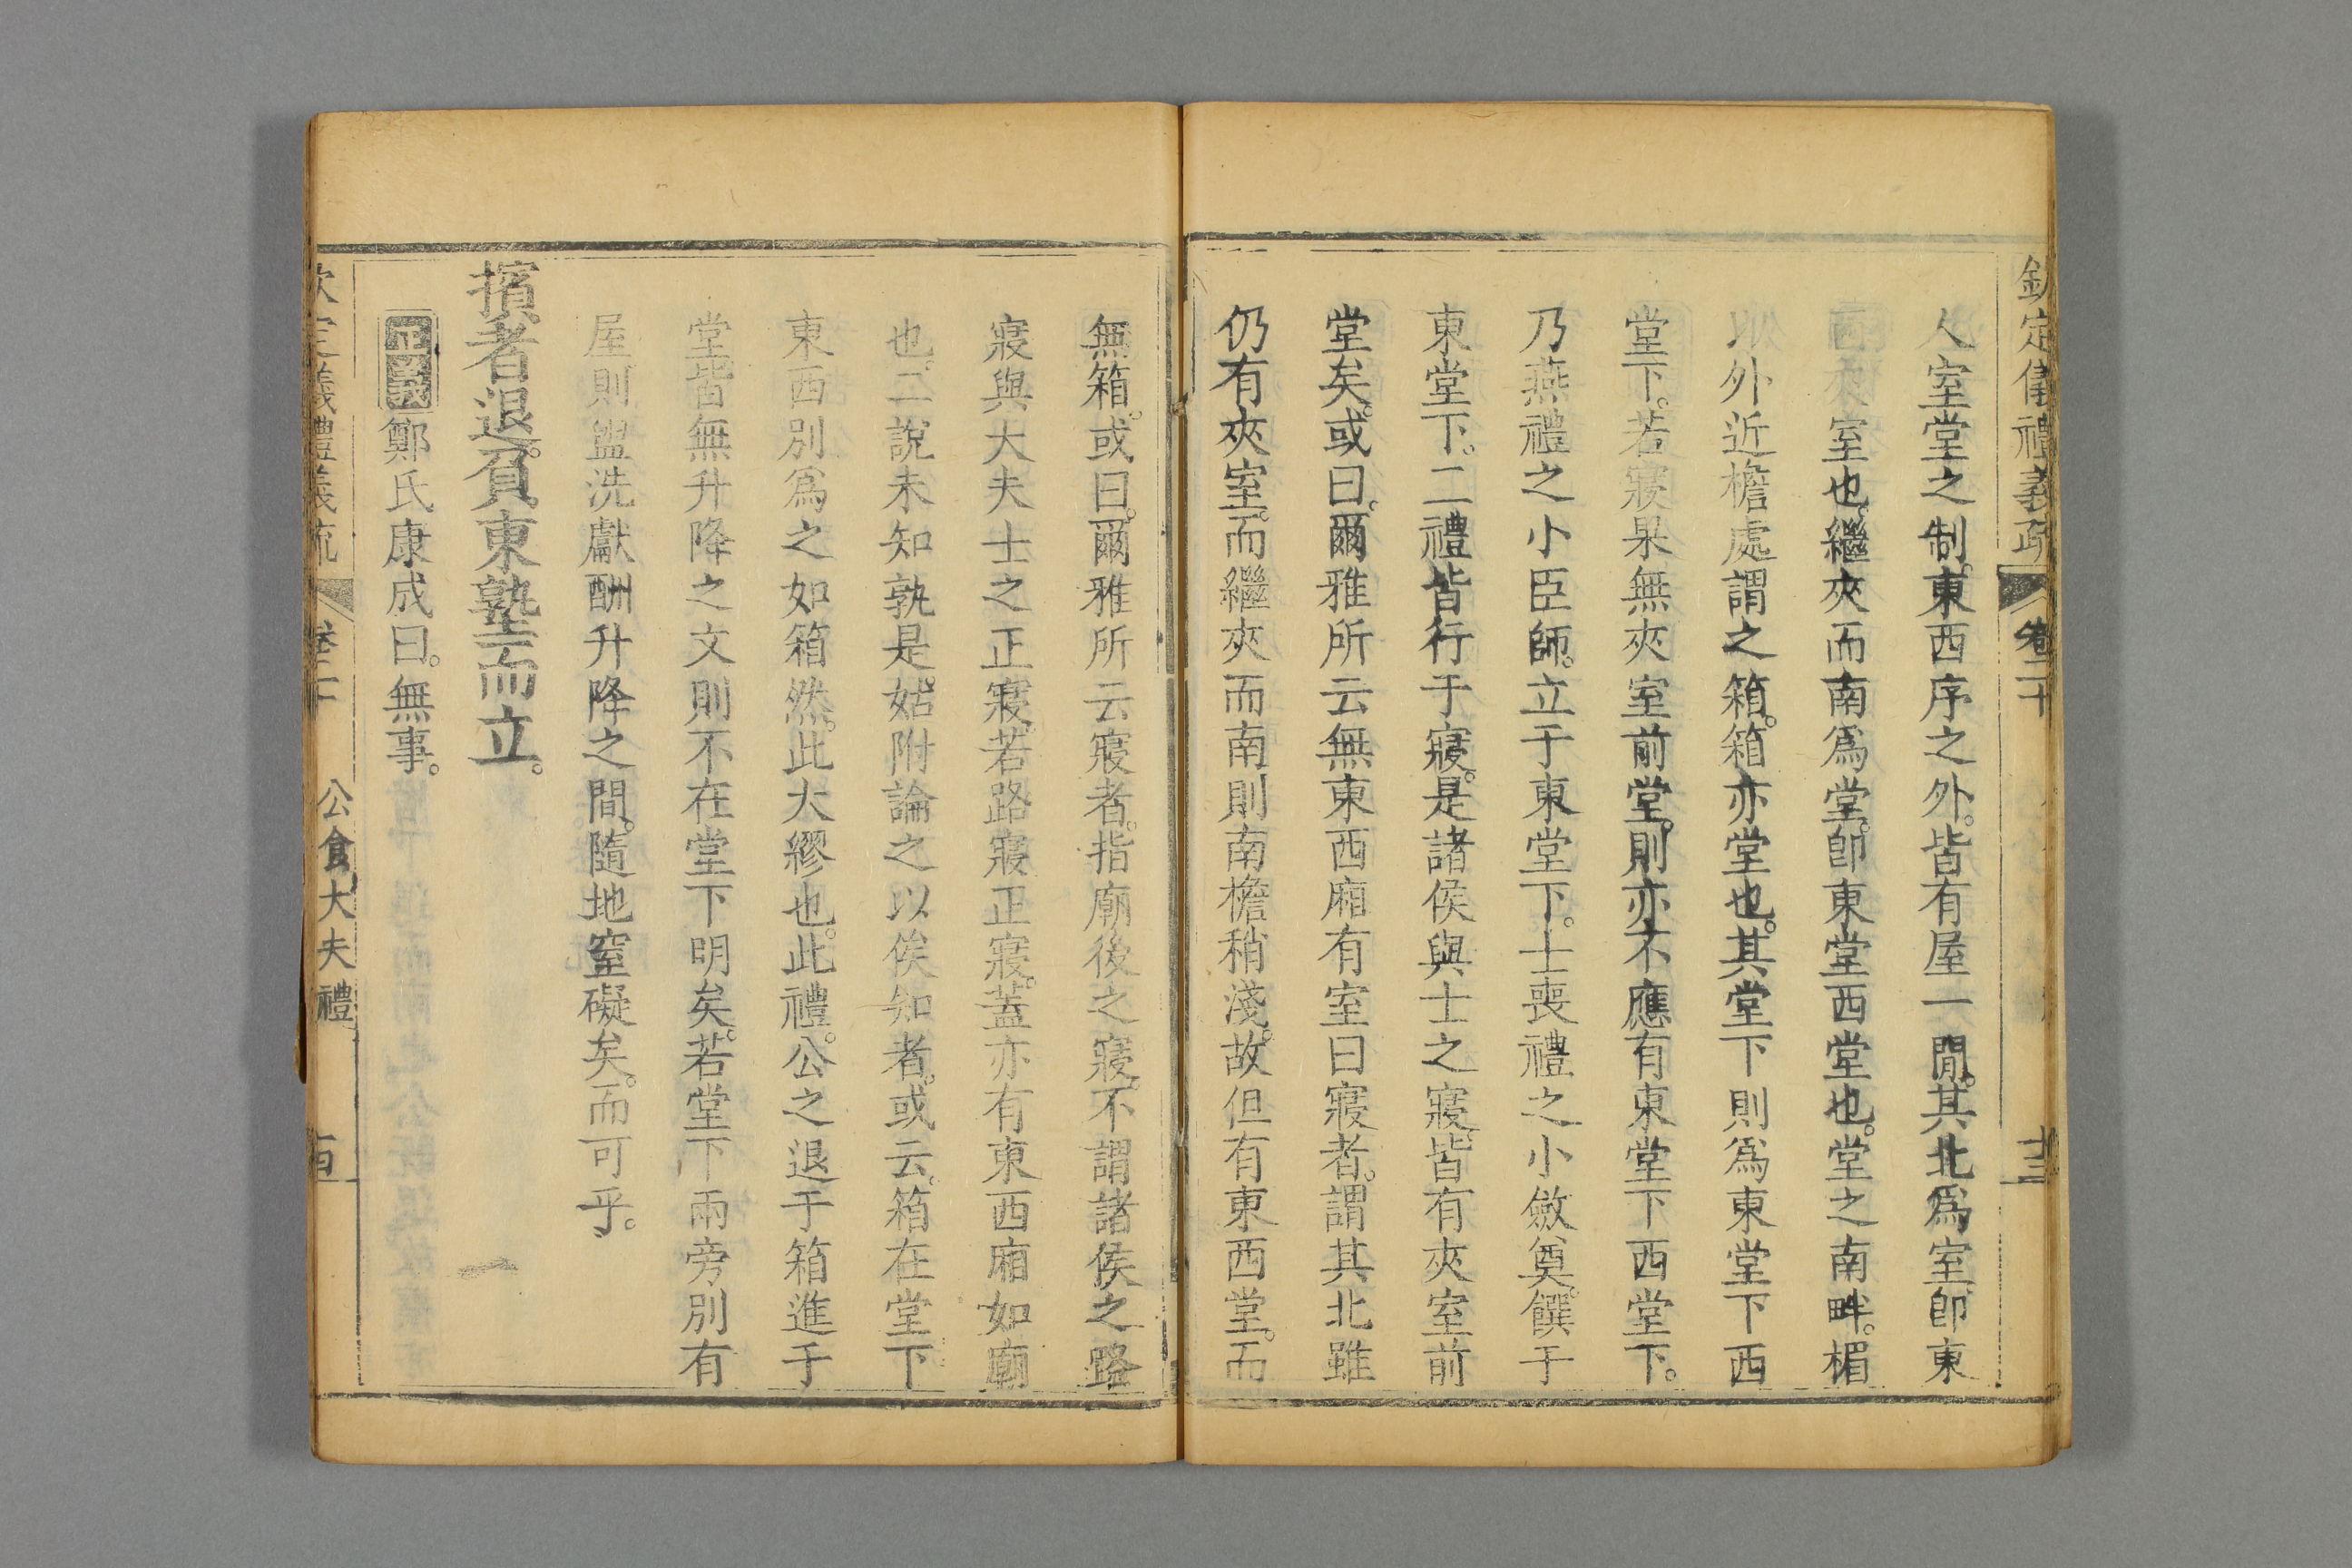 欽定儀禮義疏 卷二十 十三
人室堂之制。東西序之外。皆有屋一間。其北爲室。卽東
西夾室也。繼夾而南爲堂。卽東堂西堂也。堂之南畔。楣
以外近檐處謂之箱。箱亦堂也。其堂下則爲東堂下西
堂下。若寢果無夾室前堂。則亦不應有東堂下西堂下。
乃燕禮之小臣師。立于東堂下。士喪禮之小斂奠。饌于
東堂下。二禮皆行于寢。是諸侯與士之寢。皆有夾室前
堂矣。或曰。爾雅所云無東西廂有室曰寢者。謂其北雖
仍有夾室。而繼夾而南則南檐稍淺。故但有東西堂。而
無箱。或曰。爾雅所云寢者。指廟後之寢。不謂諸侯之路
寢與大夫士之正寢。若路寢正寢。蓋亦有東西廂如廟
也。二說未知孰是。姑附論之以俟知者。或云。箱在堂下
東西別爲之如箱然。此大繆也。此禮。公之退于箱進于
堂皆無升降之文則不在堂下明矣。若堂下兩旁別有
屋則盥洗獻酬升降之間。隨地窒礙矣。而可乎。
擯者退。負東塾而立。
正義鄭氏康成曰。無事。
欽定儀禮義疏 卷二十 公食大夫禮